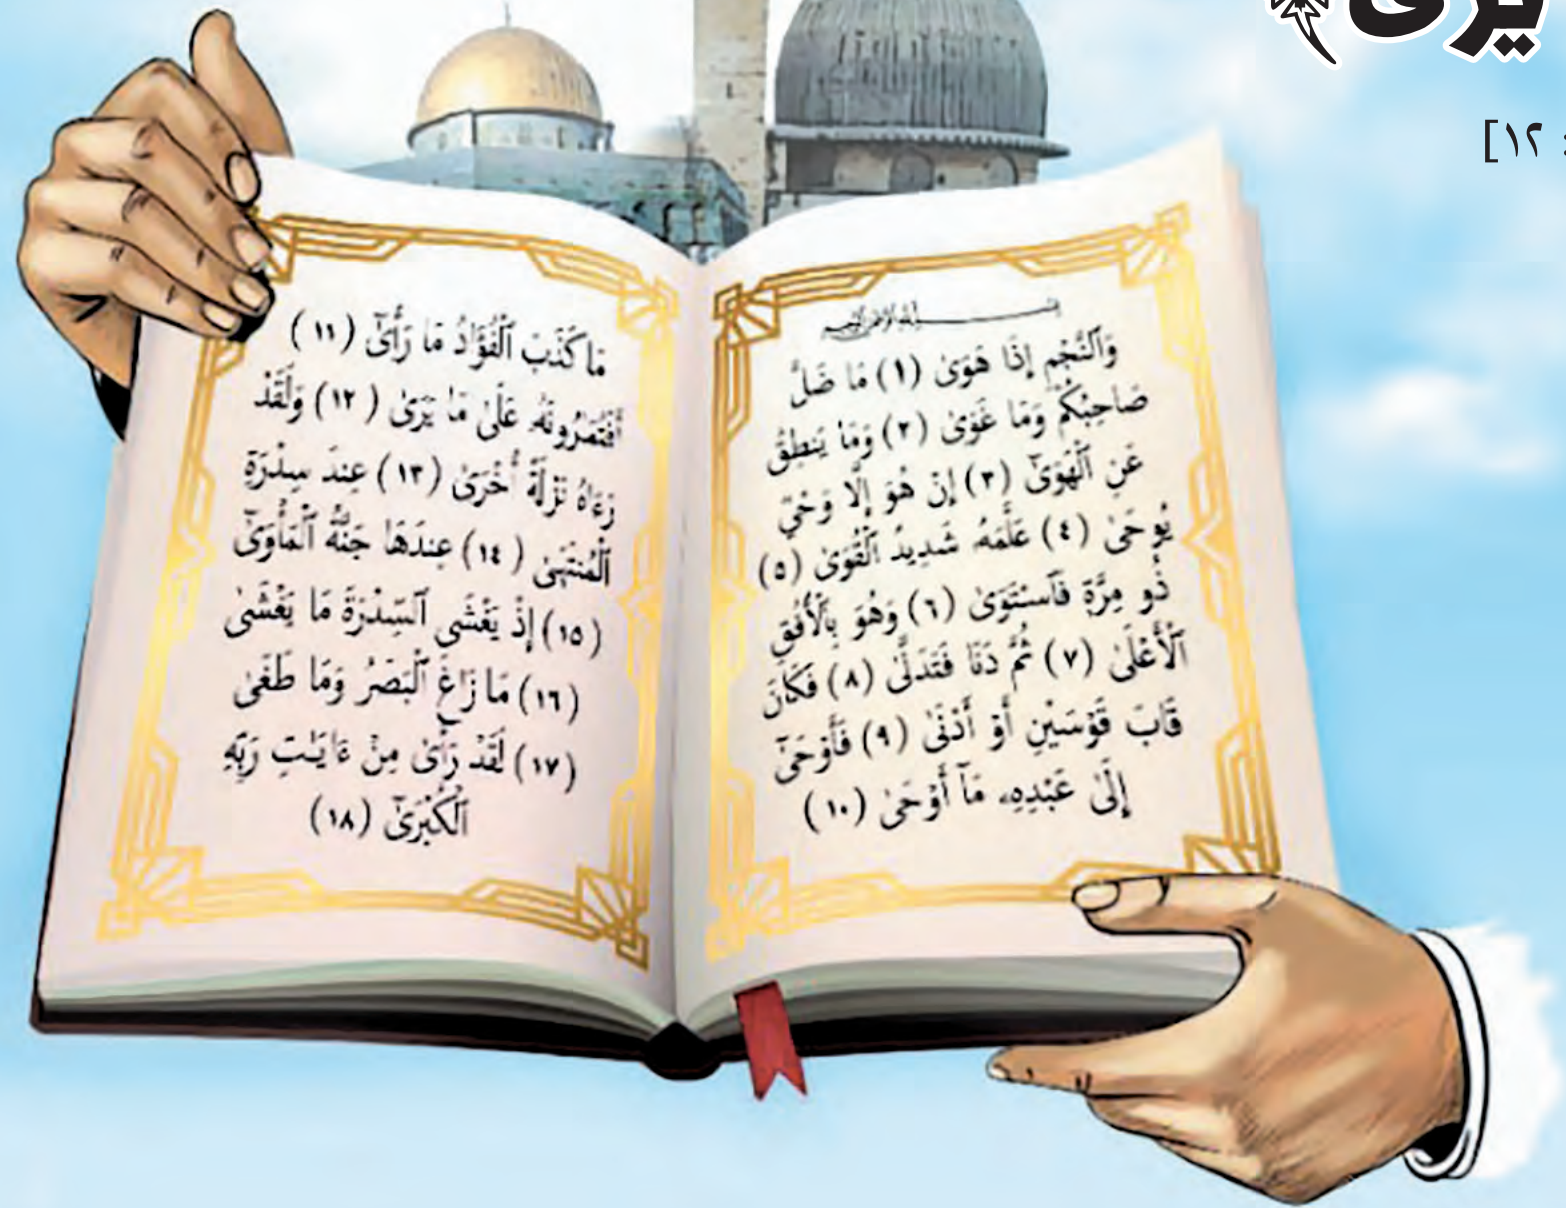 يرى
: ١٢]
بسم الله الرحمن الرحيم
وَٱلنَّجْمِ إِذَا هَوَىٰ (١) مَا ضَلَّ
صَاحِبُكُمْ وَمَا غَوَىٰ (٢) وَمَا يَنطِقُ
عَنِ ٱلْهَوَىٰٓ (٣) إِنْ هُوَ إِلَّا وَحْىٌ
يُوحَىٰ (٤) عَلَّمَهُۥ شَدِيدُ ٱلْقُوَىٰ (٥)
ذُو مِرَّةٍ فَٱسْتَوَىٰ (٦) وَهُوَ بِٱلْأُفُقِ
ٱلْأَعْلَىٰ (٧) ثُمَّ دَنَا فَتَدَلَّىٰ (٨) فَكَانَ
قَابَ قَوْسَيْنِ أَوْ أَدْنَىٰ (٩) فَأَوْحَىٰٓ
إِلَىٰ عَبْدِهِۦ مَآ أَوْحَىٰ (١٠)
مَا كَذَبَ ٱلْفُؤَادُ مَا رَأَىٰٓ (١١)
أَفَتُمَٰرُونَهُۥ عَلَىٰ مَا يَرَىٰ (١٢) وَلَقَدْ
رَءَاهُ نَزْلَةً أُخْرَىٰ (١٣) عِندَ سِدْرَةِ
ٱلْمُنتَهَىٰ (١٤) عِندَهَا جَنَّةُ ٱلْمَأْوَىٰٓ
(١٥) إِذْ يَغْشَى ٱلسِّدْرَةَ مَا يَغْشَىٰ
(١٦) مَا زَاغَ ٱلْبَصَرُ وَمَا طَغَىٰ
(١٧) لَقَدْ رَأَىٰ مِنْ ءَايَـٰتِ رَبِّهِ
ٱلْكُبْرَىٰٓ (١٨)